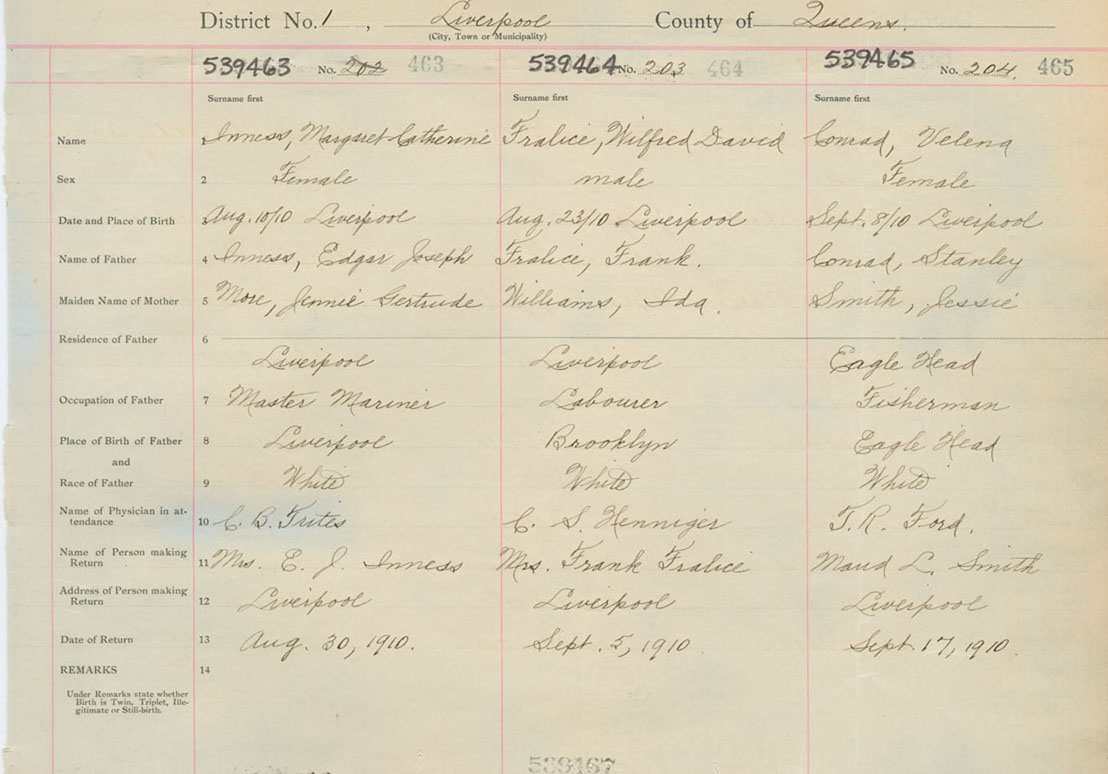 District No. 1, Liverpool County of Queens.
(City, Town or Municipality)
539463 No. 202 463 539464 No. 203 464 539465 No. 204 465
Surname first Surname first Surname first
Name 1 Inness, Margaret Catherine Fralice, Wilfred David Conrad, Velena
Sex 2 Female male Female
Date and Place of Birth 3 Aug. 10/10 Liverpool Aug. 23/10 Liverpool Sept. 8/10 Liverpool
Name of Father 4 Inness, Edgar Joseph Fralice, Frank. Conrad, Stanley
Maiden Name of Mother 5 Jennie Gertrude Williams, Ida. Smith, Jessie
Residence of Father 6
Liverpool Liverpool Eagle Head
Occupation of Father 7 Master Mariner Labourer Fisherman
Place of Birth of Father 8 Liverpool Brooklyn Eagle Head
and
Race of Father 9 White White White
Name of Physician in at-
tendance 10 C. B. Trites C. S. Henniger T. R. Ford.
Name of Person making
Return 11 Mrs. E. J. Inness Mrs. Frank Fralice Maud L. Smith
Address of Person making
Return 12 Liverpool Liverpool Liverpool
Date of Return 13 Aug. 30, 1910. Sept. 5, 1910 Sept. 17, 1910.
REMARKS 14
Under Remarks state whether
Birth is Twin, Triplet, Ille-
gitimate or Still-birth.
539467